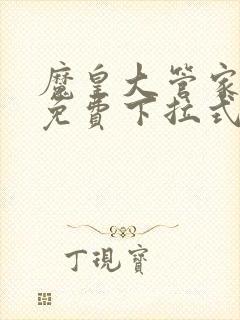 魔皇大管家
免費下拉式
丁現寶